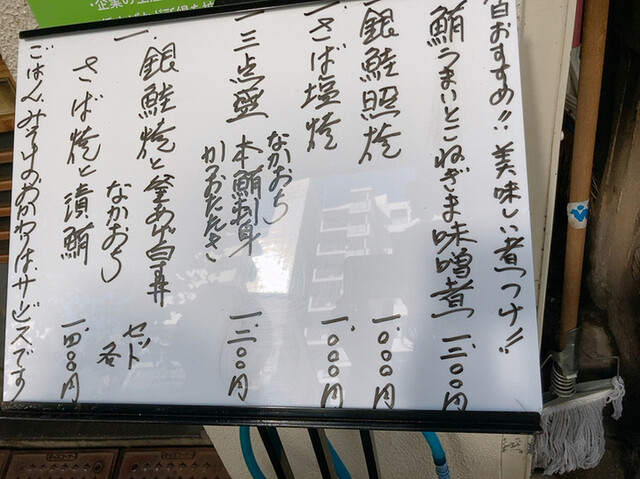 おすすめ!! 美味しい煮つけ!!
鮪うまいとこねぎま味噌煮 一、三〇〇円
一、銀鮭照焼 一、〇〇〇円
一、さば塩焼 一、〇〇〇円
一、三点盛 なかおち 本鮪刺身 かつおたたき 一、三〇〇円
一、銀鮭焼と釜あげ白丼
さば焼と漬鮪なかおち セット各 一、四〇〇円
ごはん、みそ汁のおかわりはサービスです